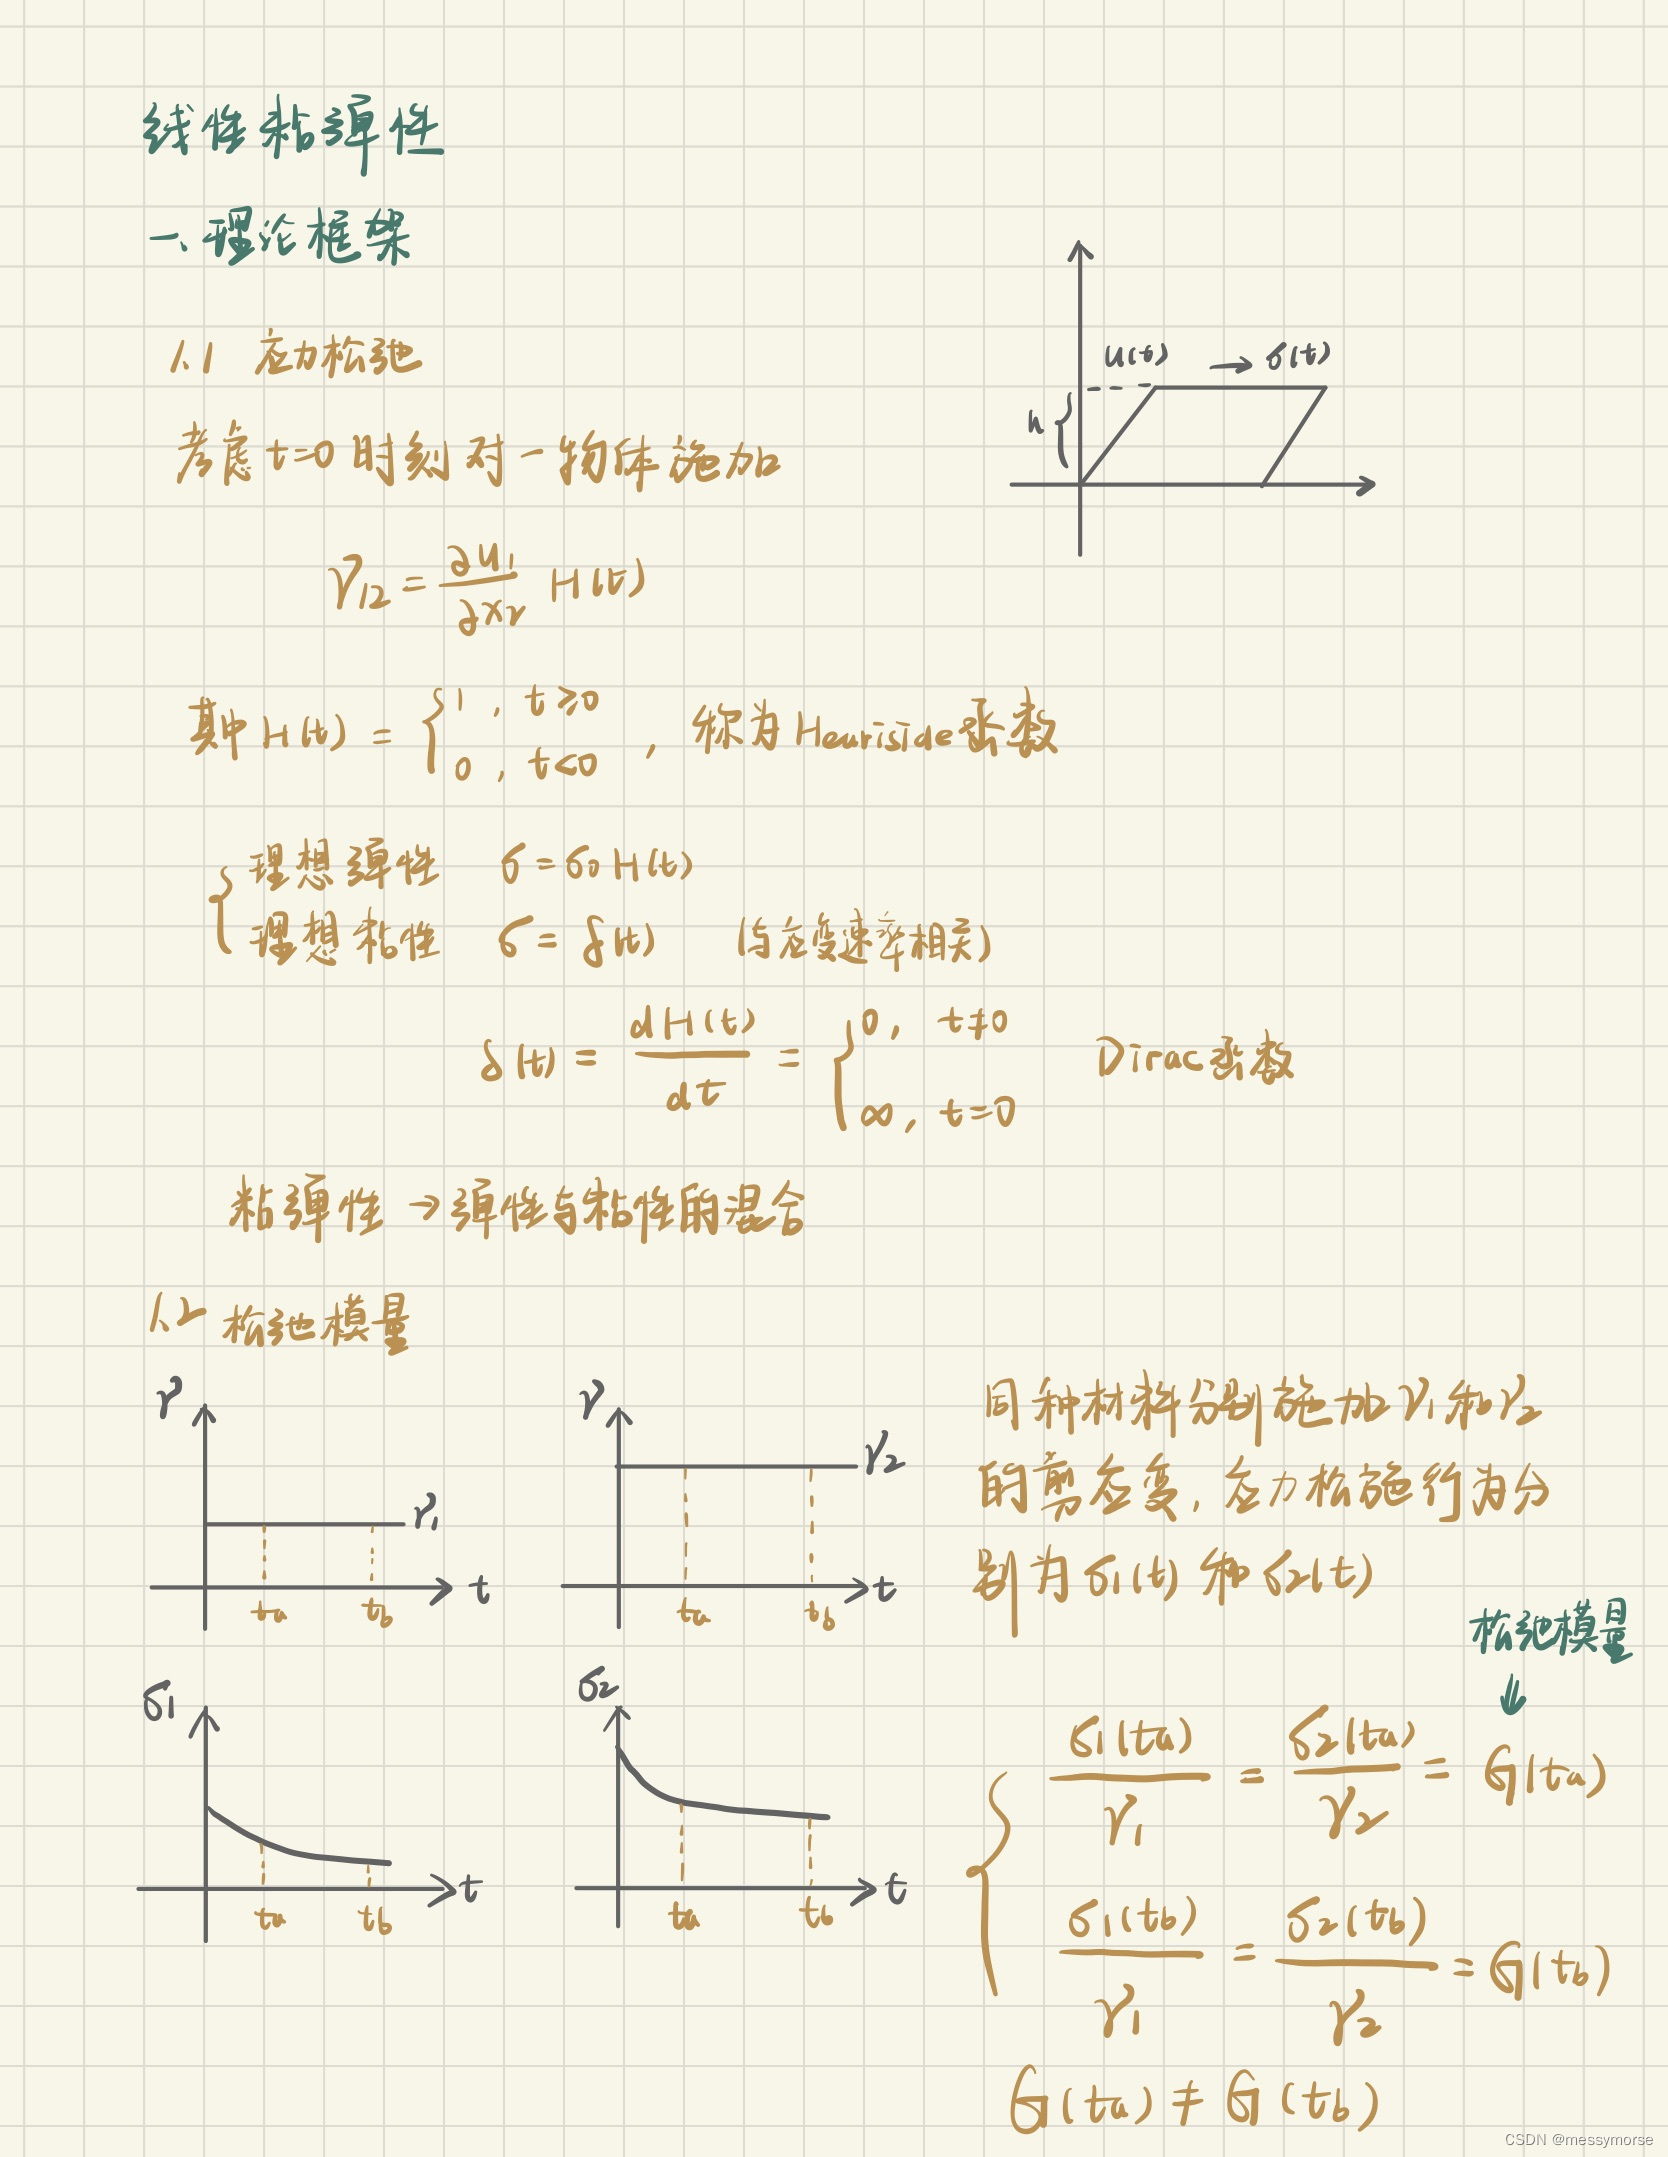 线性粘弹性
一、理论框架
1.1 应力松弛
u(t) → σ(t)
h
考虑t=0时刻对一物体施加
γ₁₂ = ∂u₁/∂x₂ H(t)
其中 H(t) = { 1, t≥0
0, t<0 , 称为Heuriside函数
理想弹性 σ=σ₀H(t)
理想粘性 σ=δ(t) (与应变速率相关)
δ(t) = dH(t)/dt = { 0, t≠0
∞, t=0 Dirac函数
粘弹性 →弹性与粘性的混合
1.2 松弛模量
γ
γ₁
t
ta tb
γ
γ₂
t
ta tb
同种材料分别施加γ₁和γ₂
的剪应变,应力松施行为分
别为σ₁(t)和σ₂(t)
σ₁
t
ta tb
σ₂
t
ta tb
松弛模量
↓
σ₁(ta)/γ₁ = σ₂(ta)/γ₂ = G(ta)
σ₁(tb)/γ₁ = σ₂(tb)/γ₂ = G(tb)
G(ta) ≠ G(tb)
CSDN @messymorse